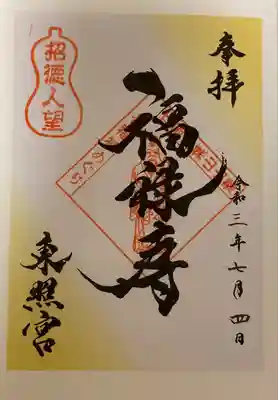 奉拝
令和三年七月四日
福禄寿
招徳人望
東照宮